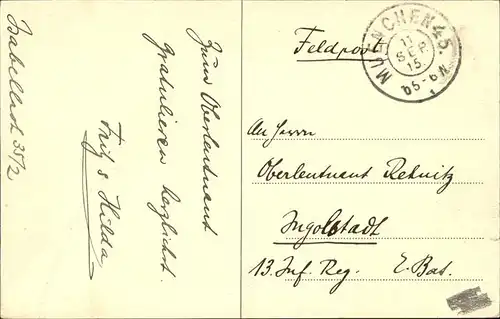 Isabellastr 35/2
Zum Oberleutnant
gratulieren herzlichst.
Fritz & Hilda
Feldpost
MUENCHEN 45.
11
SEP.
15.
5-6 N
An Herrn
Oberleutnant Rehnitz
Ingolstadt
13. Inf. Reg. E. Bat.